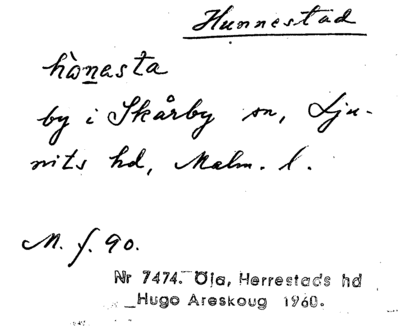 Hunnestad
hònesta
by i Skårby sn, Lju-
nits hd, Malm. l.
M. f. 90.
Nr 7474. Öja, Herrestads hd
Hugo Areskoug 1960.